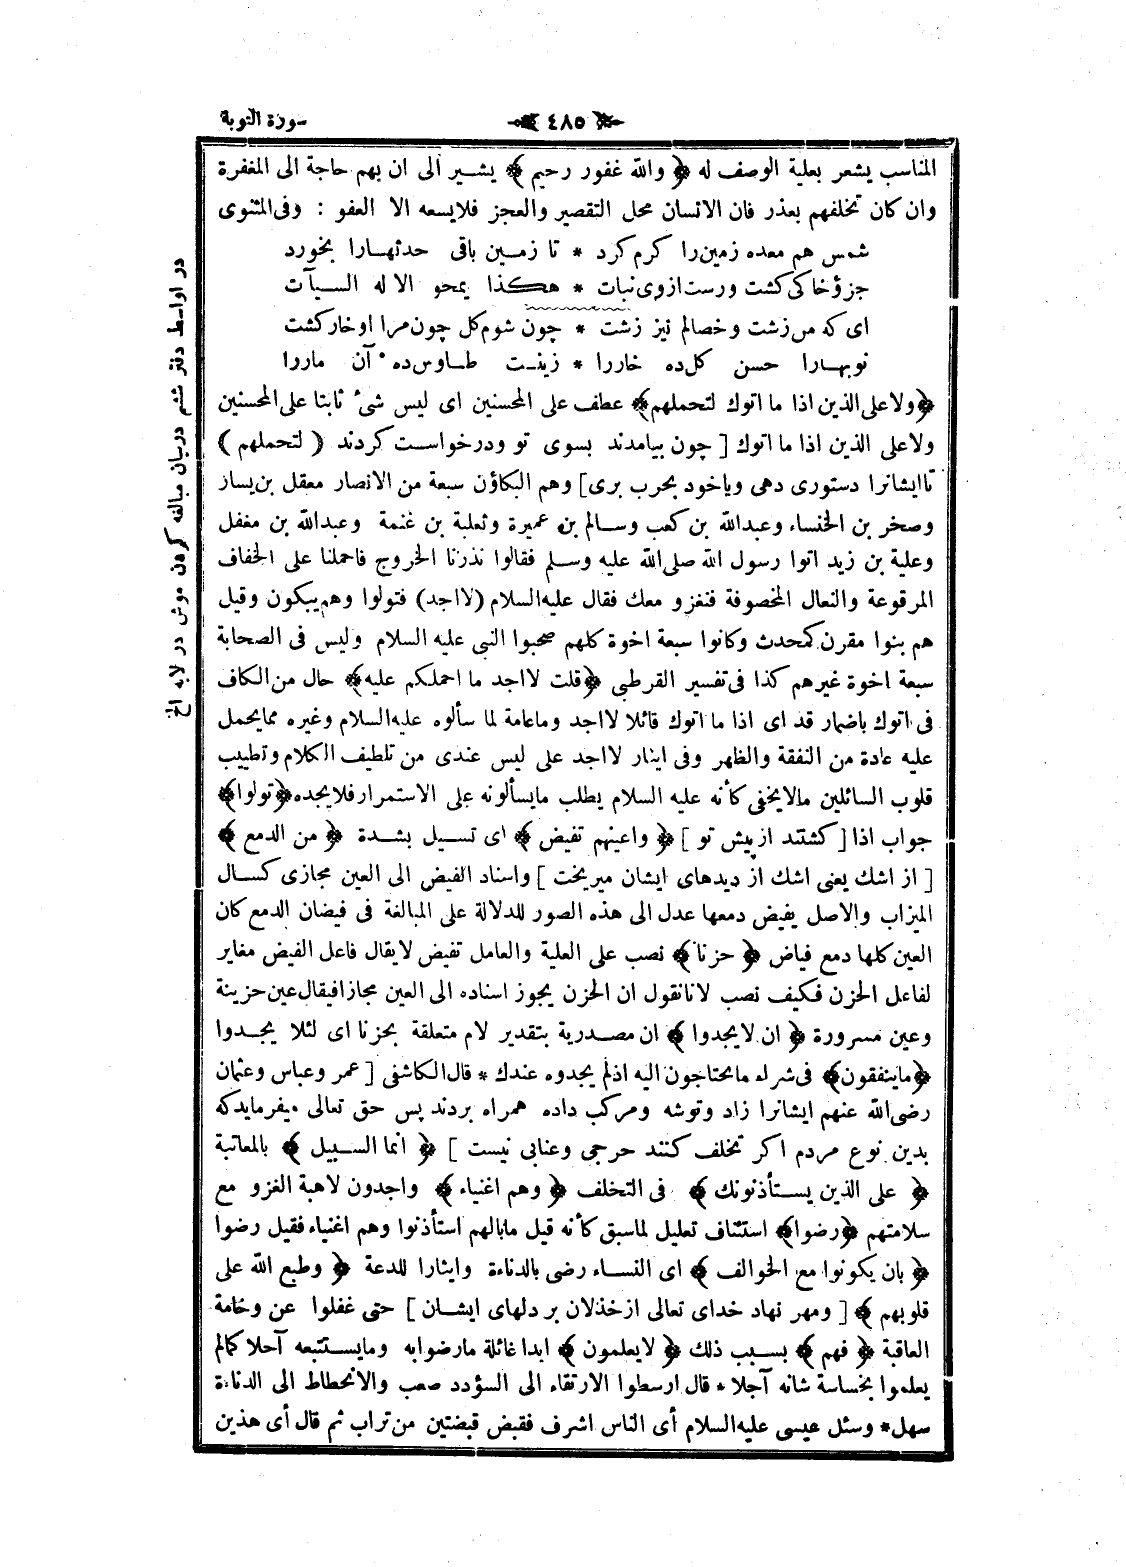 ﴿ ٤٨٥ ﴾
سورة التوبة
المناسب يشعر بعلية الوصف له ﴿ والله غفور رحيم ﴾ يشير الى ان بهم حاجة الى المغفرة
وان كان تخلفهم بعذر فان الانسان محل التقصير والعجز فلايسعه الا العفو : وفى المثنوى
شمس هم معده زمين را كرم كرد * تا زمين باقى حدثهارا بخورد
جزؤخاكى كشت ورست ازوى نبات * هكذا يمحو الاله السيآت
اى كه من زشت وخصالم نيز زشت * چون شوم كل چون مرا اوخار كشت
نوبهارا حسن كل ده خاررا * زينت طاوس ده آن ماررا
﴿ولاعلى الذين اذا ما اتوك لتحملهم﴾ عطف على المحسنين اى ليس شئ ثابتا على المحسنين
ولاعلى الذين اذا ما اتوك [ چون بيامدند بسوى تو ودرخواست كردند ( لتحملهم )
تاايشانرا دستورى دهى وياخود بحرب برى] وهم البكاؤن سبعة من الانصار معقل بن يسار
وصخر بن الخنساء وعبدالله بن كعب وسالم بن عميرة وثعلبة بن غنمة وعبدالله بن مغفل
وعلية بن زيد اتوا رسول الله صلى الله عليه وسلم فقالوا نذرنا الخروج فاحملنا على الخفاف
المرقوعة والنعال المخصوفة فنغزو معك فقال عليه السلام (لااجد) فتولوا وهم يبكون وقيل
هم بنوا مقرن كمحدث وكانوا سبعة اخوة كلهم صحبوا النبى عليه السلام وليس فى الصحابة
سبعة اخوة غيرهم كذا فى تفسير القرطبى ﴿قلت لااجد ما احملكم عليه﴾ حال من الكاف
فى اتوك باضمار قد اى اذا ما اتوك قائلا لااجد وماعامة لما سألوه عليه السلام وغيره ممايحمل
عليه عادة من النفقة والظهر وفى ايثار لااجد على ليس عندى من تلطيف الكلام وتطييب
قلوب السائلين مالايخفى كأنه عليه السلام يطلب مايسألونه على الاستمرار فلايجده ﴿تولوا﴾
جواب اذا [ كشتند از پيش تو ] ﴿ واعينهم تفيض ﴾ اى تسيل بشدة ﴿ من الدمع ﴾
[ از اشك يعنى اشك از ديدهاى ايشان ميريخت ] واسناد الفيض الى العين مجازى كسال
الميزاب والاصل يفيض دمعها عدل الى هذه الصور للدلالة على المبالغة فى فيضان الدمع كان
العين كلها دمع فياض ﴿ حزنا ﴾ نصب على العلية والعامل تفيض لايقال فاعل الفيض مغاير
لفاعل الحزن فكيف نصب لانانقول ان الحزن يجوز اسناده الى العين مجازا فيقال عين حزينة
وعين مسرورة ﴿ ان لايجدوا ﴾ ان مصدرية بتقدير لام متعلقة بحزنا اى لئلا يجدوا
﴿ماينفقون﴾ فى شراء مايحتاجون اليه اذلم يجدوه عندك * قال الكاشفى [ عمر وعباس وعثمان
رضى الله عنهم ايشانرا زاد وتوشه ومركب داده همراه بردند پس حق تعالى ميفرمايدكه
بدين نوع مردم اكر تخلف كنند حرجى وعتابى نيست ] ﴿ انما السبيل ﴾ بالمعاتبة
﴿ على الذين يستأذنونك ﴾ فى التخلف ﴿ وهم اغنياء ﴾ واجدون لاهبة الغزو مع
سلامتهم ﴿رضوا﴾ استئناف تعليل لماسبق كأنه قيل مابالهم استأذنوا وهم اغنياء فقيل رضوا
﴿ بان يكونوا مع الخوالف ﴾ اى النساء رضى بالدناءة وايثارا للدعة ﴿ وطبع الله على
قلوبهم ﴾ [ ومهر نهاد خداى تعالى از خذلان بر دلهاى ايشان ] حتى غفلوا عن وخامة
العاقبة ﴿ فهم ﴾ بسبب ذلك ﴿ لايعلمون ﴾ ابدا غائلة مارضوابه ومايستتبعه آجلا كمالم
يعلموا بخساسة شانه آجلا * قال ارسطوا الارتقاء الى السؤدد صعب والانحطاط الى الدناءة
سهل * وسئل عيسى عليه السلام أى الناس اشرف فقبض قبضتين من تراب ثم قال أى هذين
در اواسط دفتر ششم دربيان مبالغه كردن موش در لابه الخ